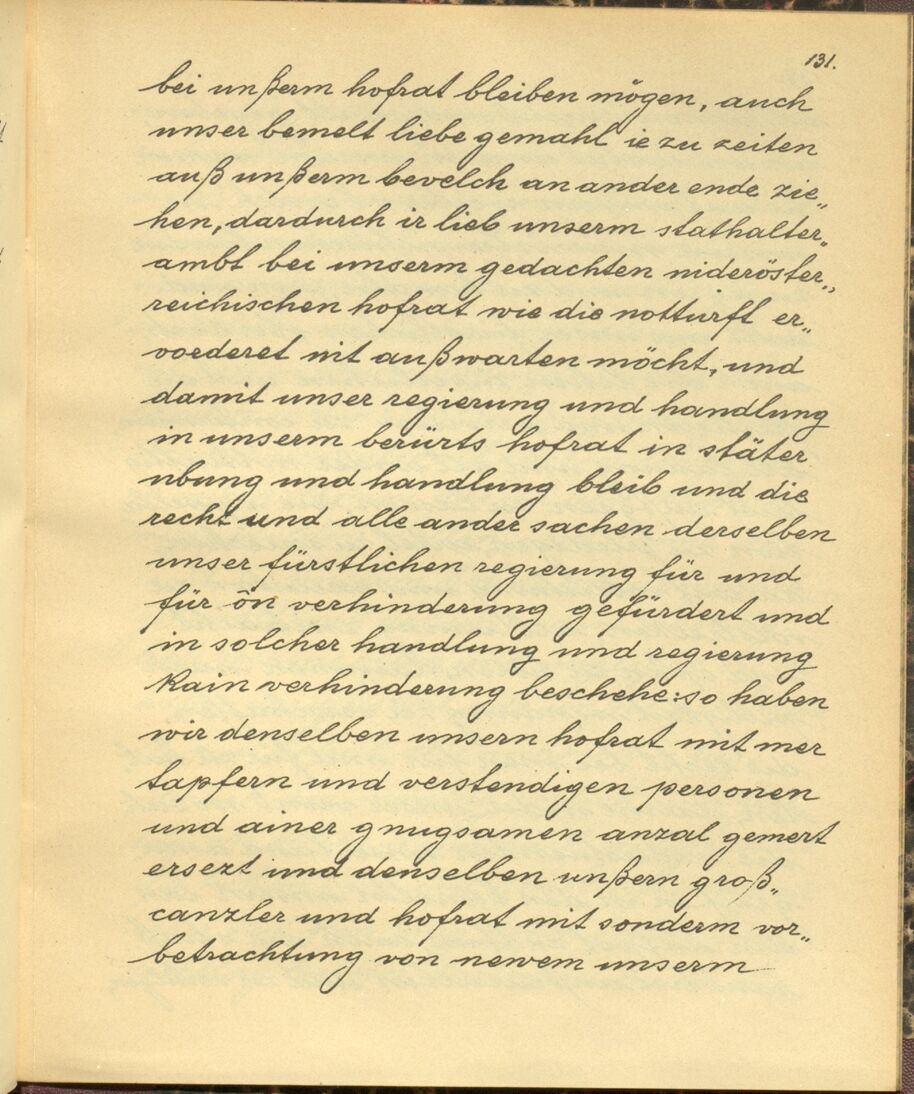 131.
bei unßerm hofrat bleiben mögen, auch
unser bemelt liebe gemahl ie zu zeiten
auß unßerm bevelch an ander ende zie„
hen, dardurch ir lieb unserm stathalter„
ambt bei unserm gedachten nideröster„
reichischen hofrat wie die notturft er„
voederet nit außwarten möcht, und
damit unser regierung und handlung
in unserm berürts hofrat in stäter
ubung und handlung bleib und die
recht und alle ander sachen derselben
unser fürstlichen regierung für und
für ôn verhinderung gefürdert und
in solcher handlung und regierung
kain verhinderung beschehe: so haben
wir denselben unsern hofrat mit mer
tapfern und verstendigen personen
und ainer gnugsamen anzal gemert
ersezt und denselben unßern groß„
canzler und hofrat mit sonderm vor„
betrachtung von newem unserm